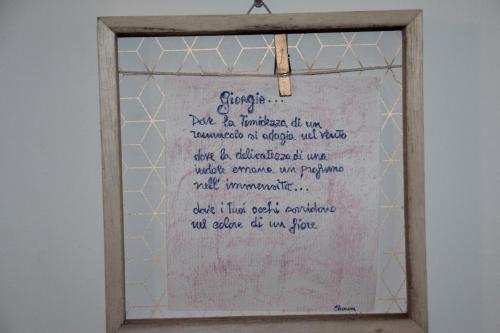 Giorgia...
Dove la Timidezza di un
ranuncolo si adagia nel vento
dove la delicatezza di una
indole emana un profumo
nell'immensità...
dove i tuoi occhi sorridono
nel colore di un fiore